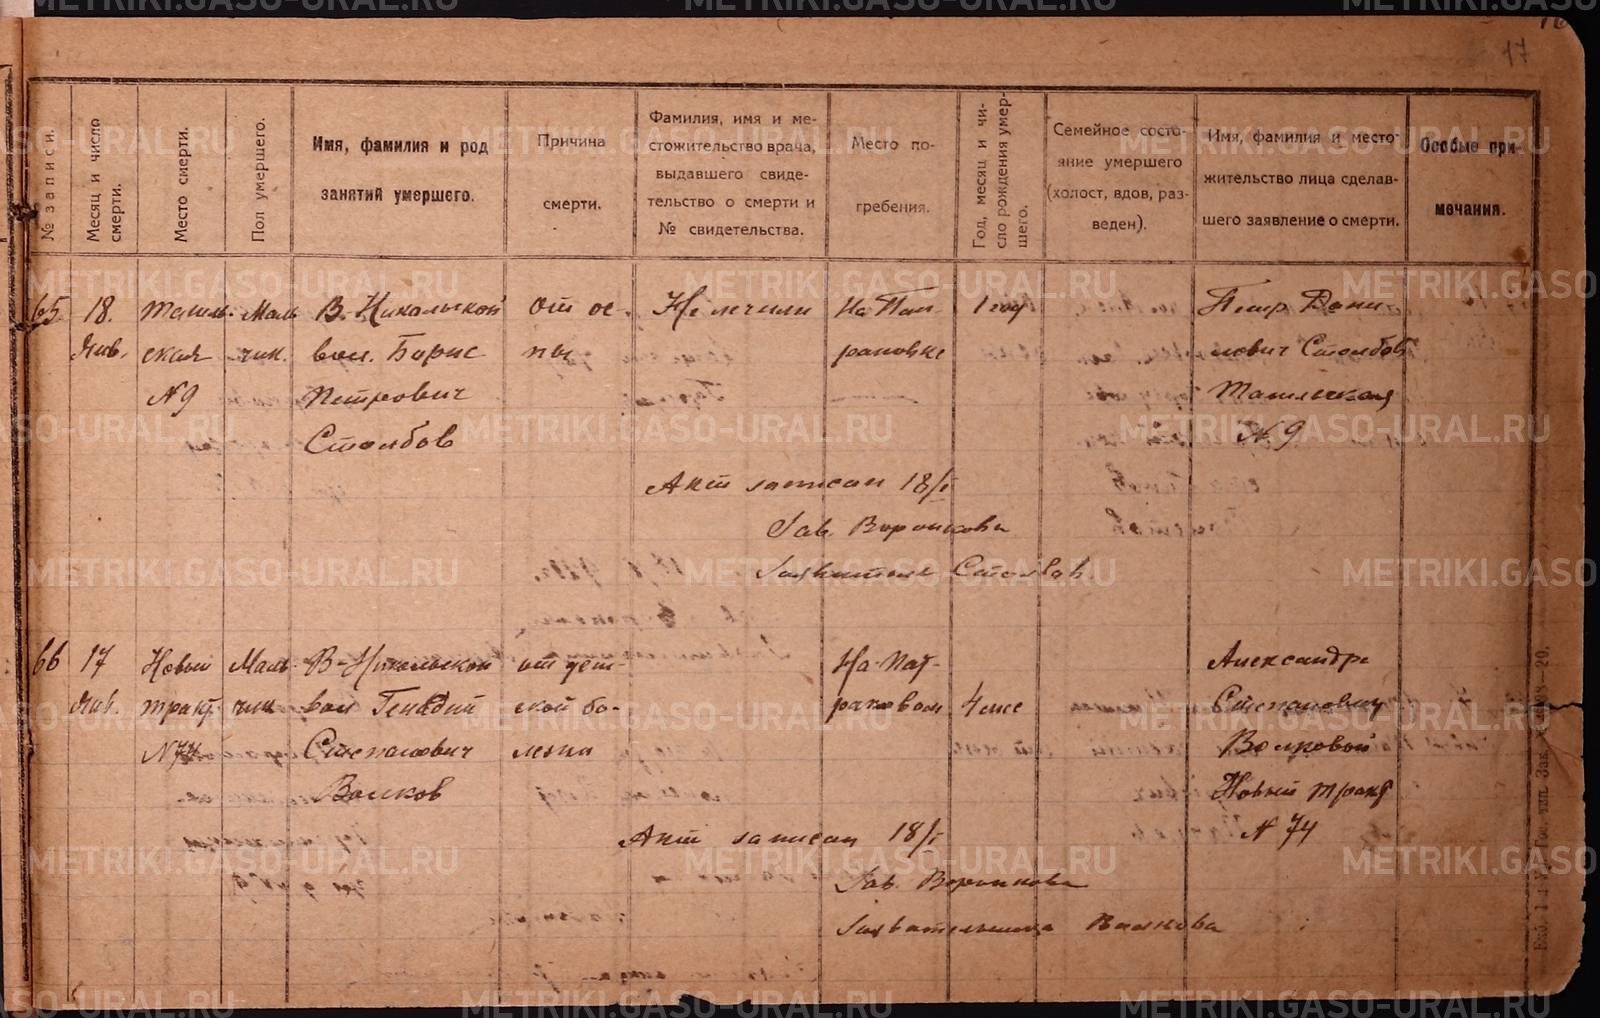 17
№ записи.
Месяц и число смерти.
Место смерти.
Пол умершего.
Имя, фамилия и род занятий умершего.
Причина смерти.
Фамилия, имя и место­жительство врача, выдавшего свиде­тельство о смерти и № свидетельства.
Место по­гребения.
Год, месяц и чи­сло рождения умер­шего.
Семейное состо­яние умершего (холост, вдов, раз­веден).
Имя, фамилия и место­жительство лица сделав­шего заявление о смерти.
Особые при­мечания.
65
18.
Янв.
Тагиль-
ская
№9
Маль
чик.
В. Никольской
вол. Борис
Петрович
Столбов
от ос-
пы
Не лечили
На Пат
раковке
1 год
Петр Дани
лович Столбов
Тагильская
№ 9
Акт записан 18/I
Зав. Воронкова
Заявитель Столбов
66
17
Янв.
Новый
тракт
№74
Маль-
чик
В-Никольской
вол Генадий
Степанович
Волков
от дет-
ской бо-
лезни
На Пат-
раковом
4 мес
Александра
Степановну
Волковой
Новый тракт
№ 74
Акт записан 18/I
Зав. Воронкова
Заявительница Волкова
METRIKI.GASO-URAL.RU